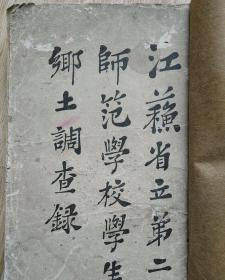 江蘓省立第二
師范學校學生
鄉土調查録